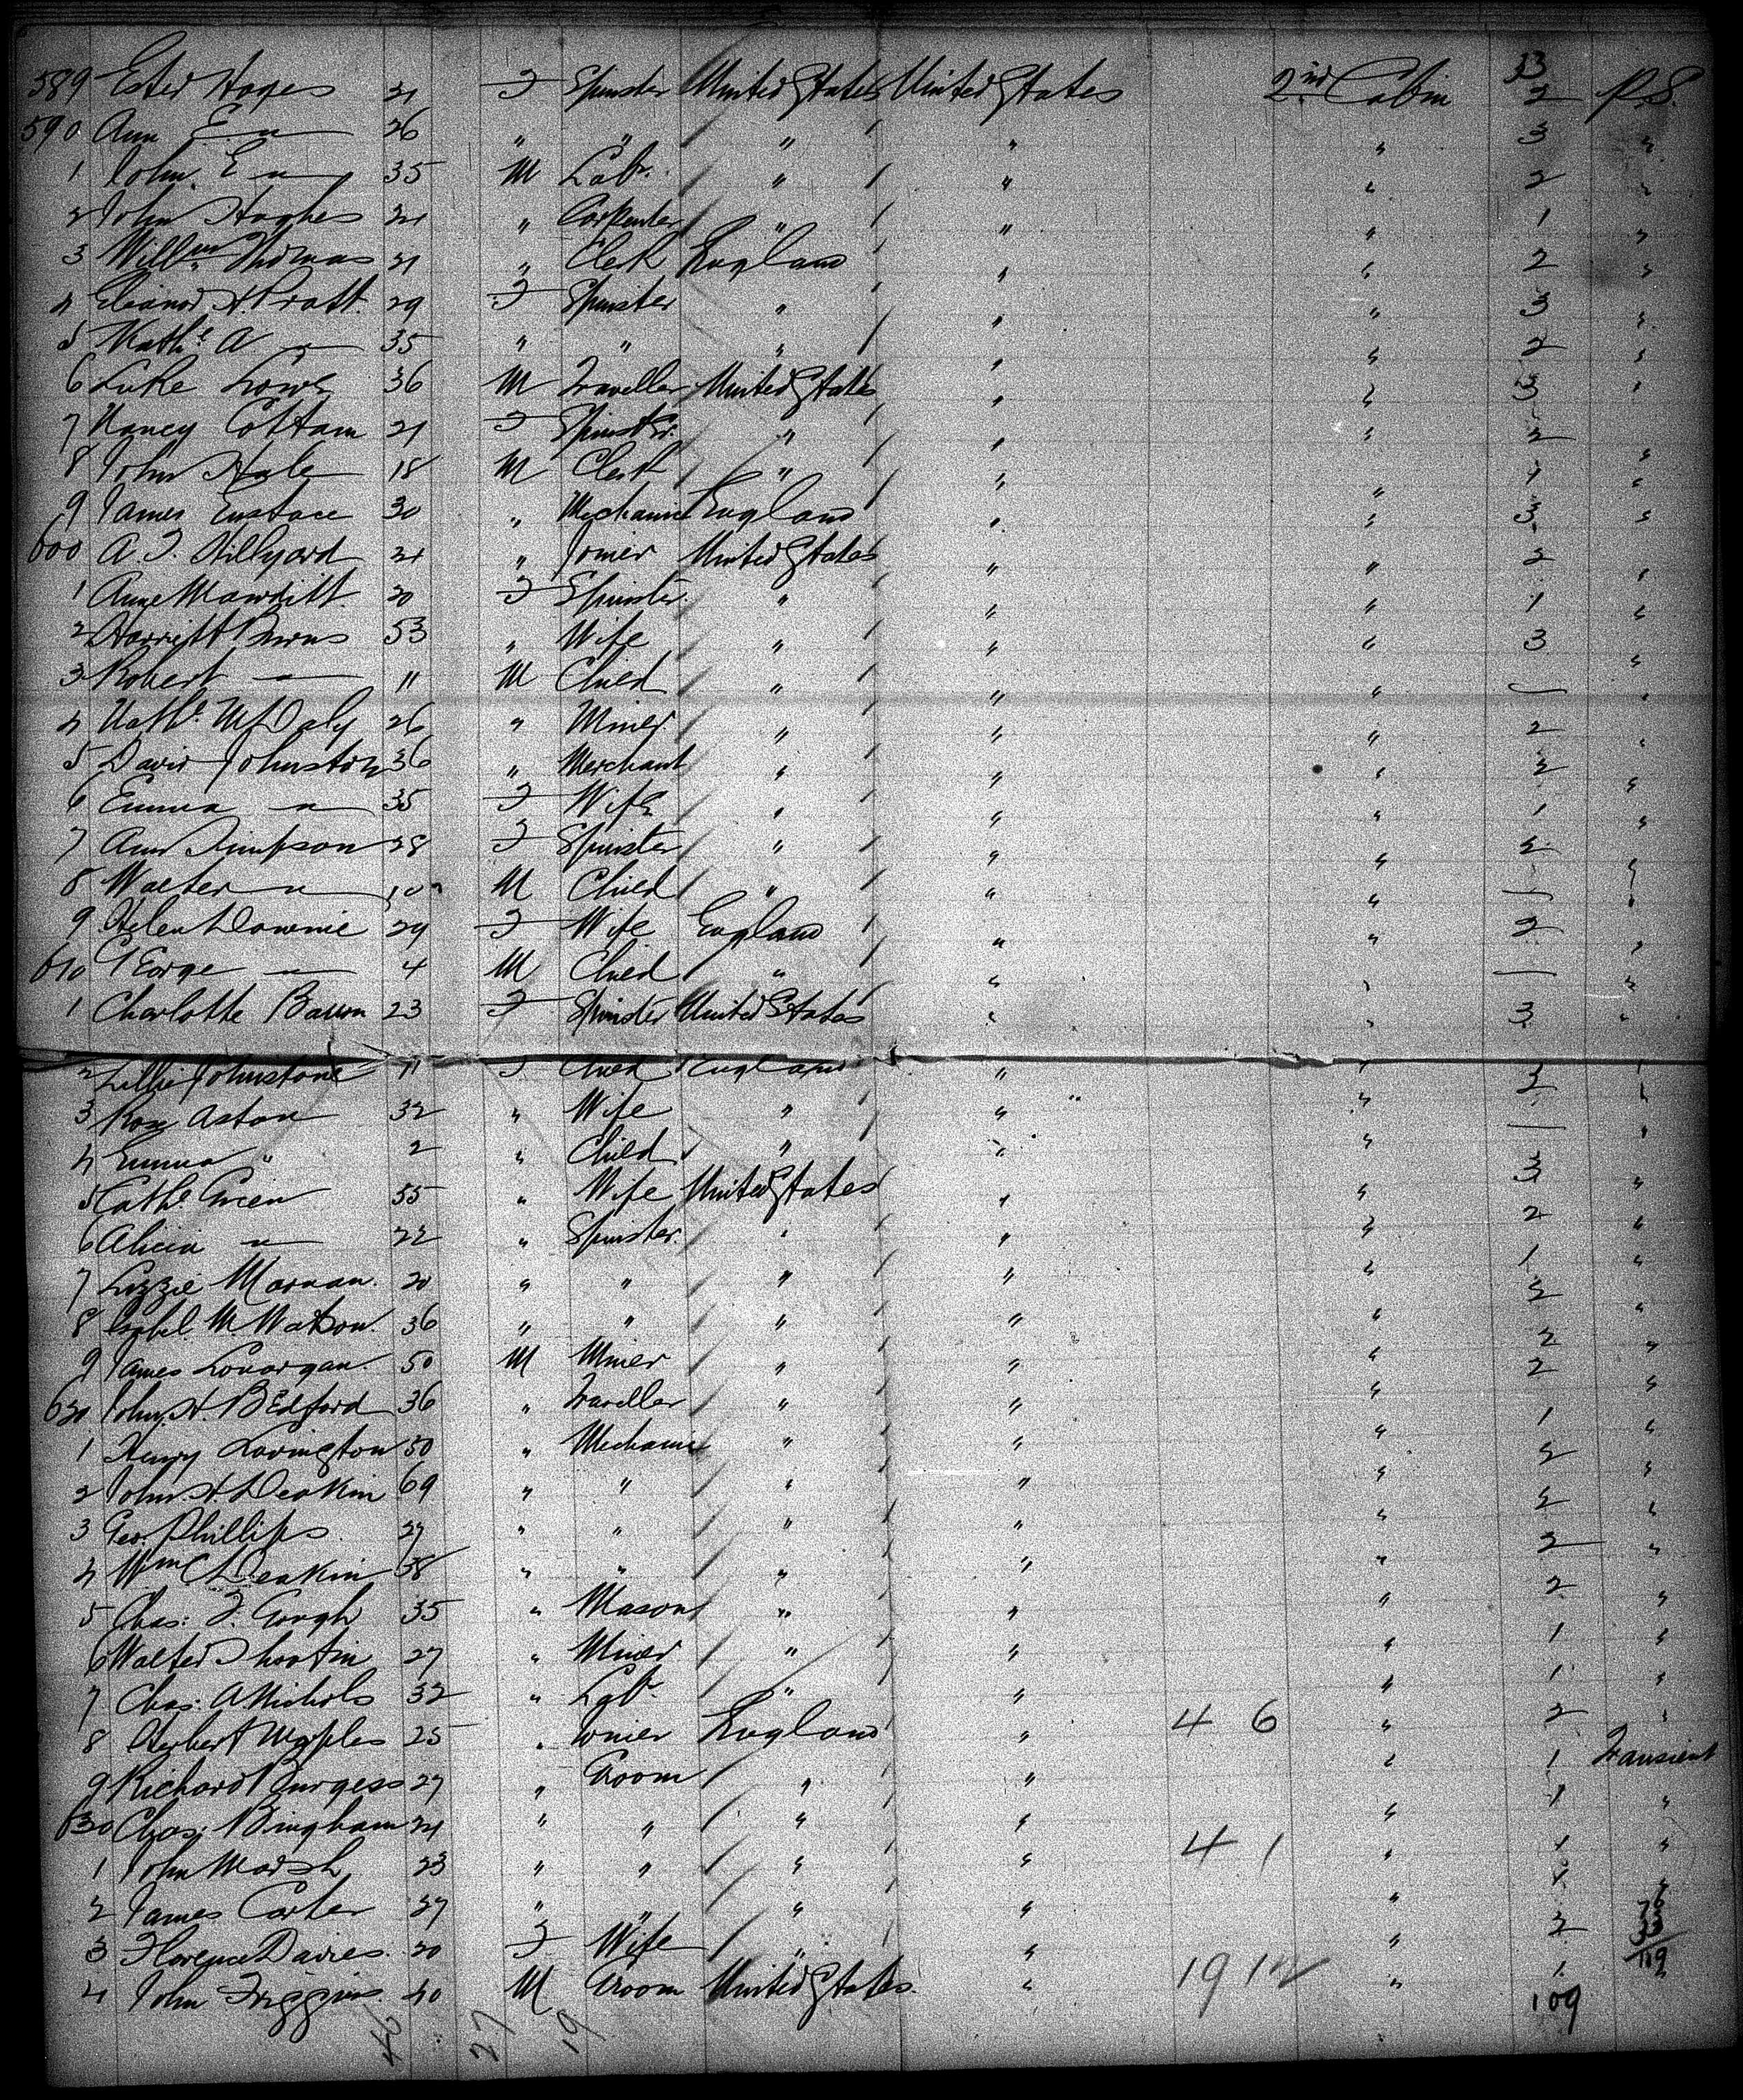 33
589 Ester Hayes 21 F Spinster United States United States 2nd Cabin 2 P.S.
590 Ann E " 26 " " " " " 3 "
1 John E " 35 M Labr. " " " 2 "
2 John Hughes 21 " Carpenter " " " 1 "
3 Willm Thomas 21 " Clerk England " " 2 "
4 Eleanor H. Pratt. 29 F Spinster " " " 3 "
5 Kathe A " 35 " " " " " 2 "
6 Luke Lowe 36 M Traveller United States " " 3 "
7 Nancy Cottam 21 F Spinster " " " 2 "
8 John Hale 18 M Clerk " " " 1 "
9 James Eustace 30 " Mechanic England " " 3 "
600 A. F. Hillyard 21 " Joiner United States " " 2 "
1 Anne 20 F Spinster " " " 1 "
2 Harriett Burns 53 " Wife " " " 3 "
3 Robert — 11 M Child " " " — "
4 McDaly 26 " Miner " " " 2 "
5 David Johnston 36 " Merchant " " " 2 "
6 Emma " 35 F Wife " " " 1 "
7 Ann Simpson 28 F Spinster " " " 2 "
8 Walter " 10 M Child " " " — "
9 Helen Downie 29 F Wife England " " 2 "
610 George " 4 M Child " " " — "
1 Charlotte 23 F Spinster United States " " 3 "
2 Lillie Johnstone 11 F Child England " " "
3 Rose Aston 32 " Wife " " " 2 "
4 Emma " 2 " Child " " " — "
5 Cathe Green 55 " Wife United States " " 3 "
6 Alicia " 22 " Spinster " " " 2 "
7 Lizzie Marnan. 20 " " " " " 1 "
8 M. Watson. 36 " " " " " 2 "
9 James Lonargan. 50 M Miner " " " 2 "
620 John H. Bedford 36 " Traveller " " " 2 "
1 Henry Lovington 50 " Mechanic " " " 1 "
2 John H. Deakin 69 " " " " " 2 "
3 Geo. Phillips 27 " " " " " 2 "
4 Wm C Deakin 38 " " " " " 2 "
5 Chas: F. Gough 35 " Mason " " " 2 "
6 Walter 27 " Miner " " " 1 "
7 Chas: A Nichols 32 " Labr. " " " 1 "
8 Herbert 25 " Joiner England " 46 " 2 "
9 Richard Burgess 27 " Groom " " " 1 Transient
630 Chas: Bingham 21 " " " " " 1 "
1 John Marsh 23 " " " " 41 " 1 "
2 James Carter 27 " " " " " 1 "
3 Florence Davies. 20 F Wife " " " 2
4 John Friggins. 40 M Groom United States. " 19 12 " 1
109
46 27 19